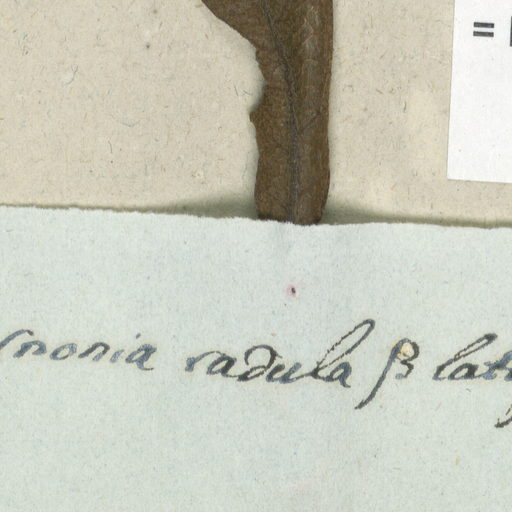 =
nonia radula β lati